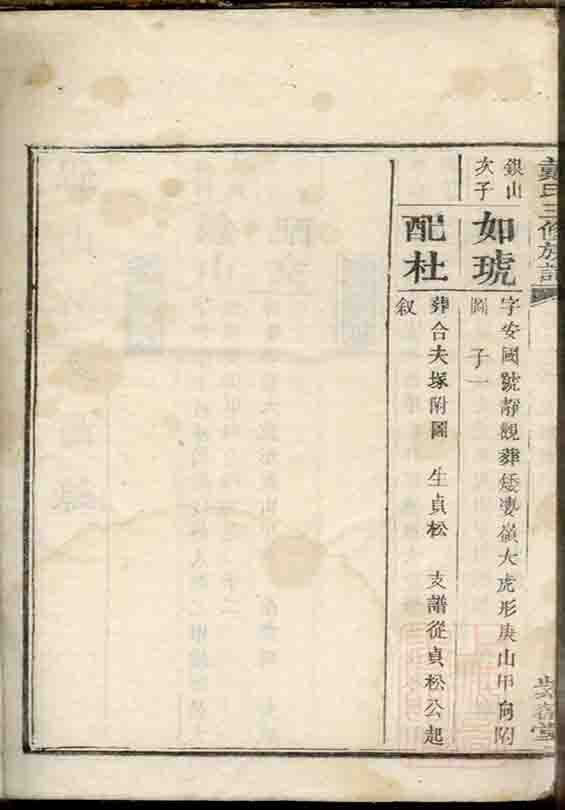 戴氏三修族譜
銀山
次子
如琥
字安國號靜觀葬矮凄嶺大虎形庚山甲向附
圖 子一
配杜
葬合夫塚附圖 生貞松 支譜從貞松公起
叙